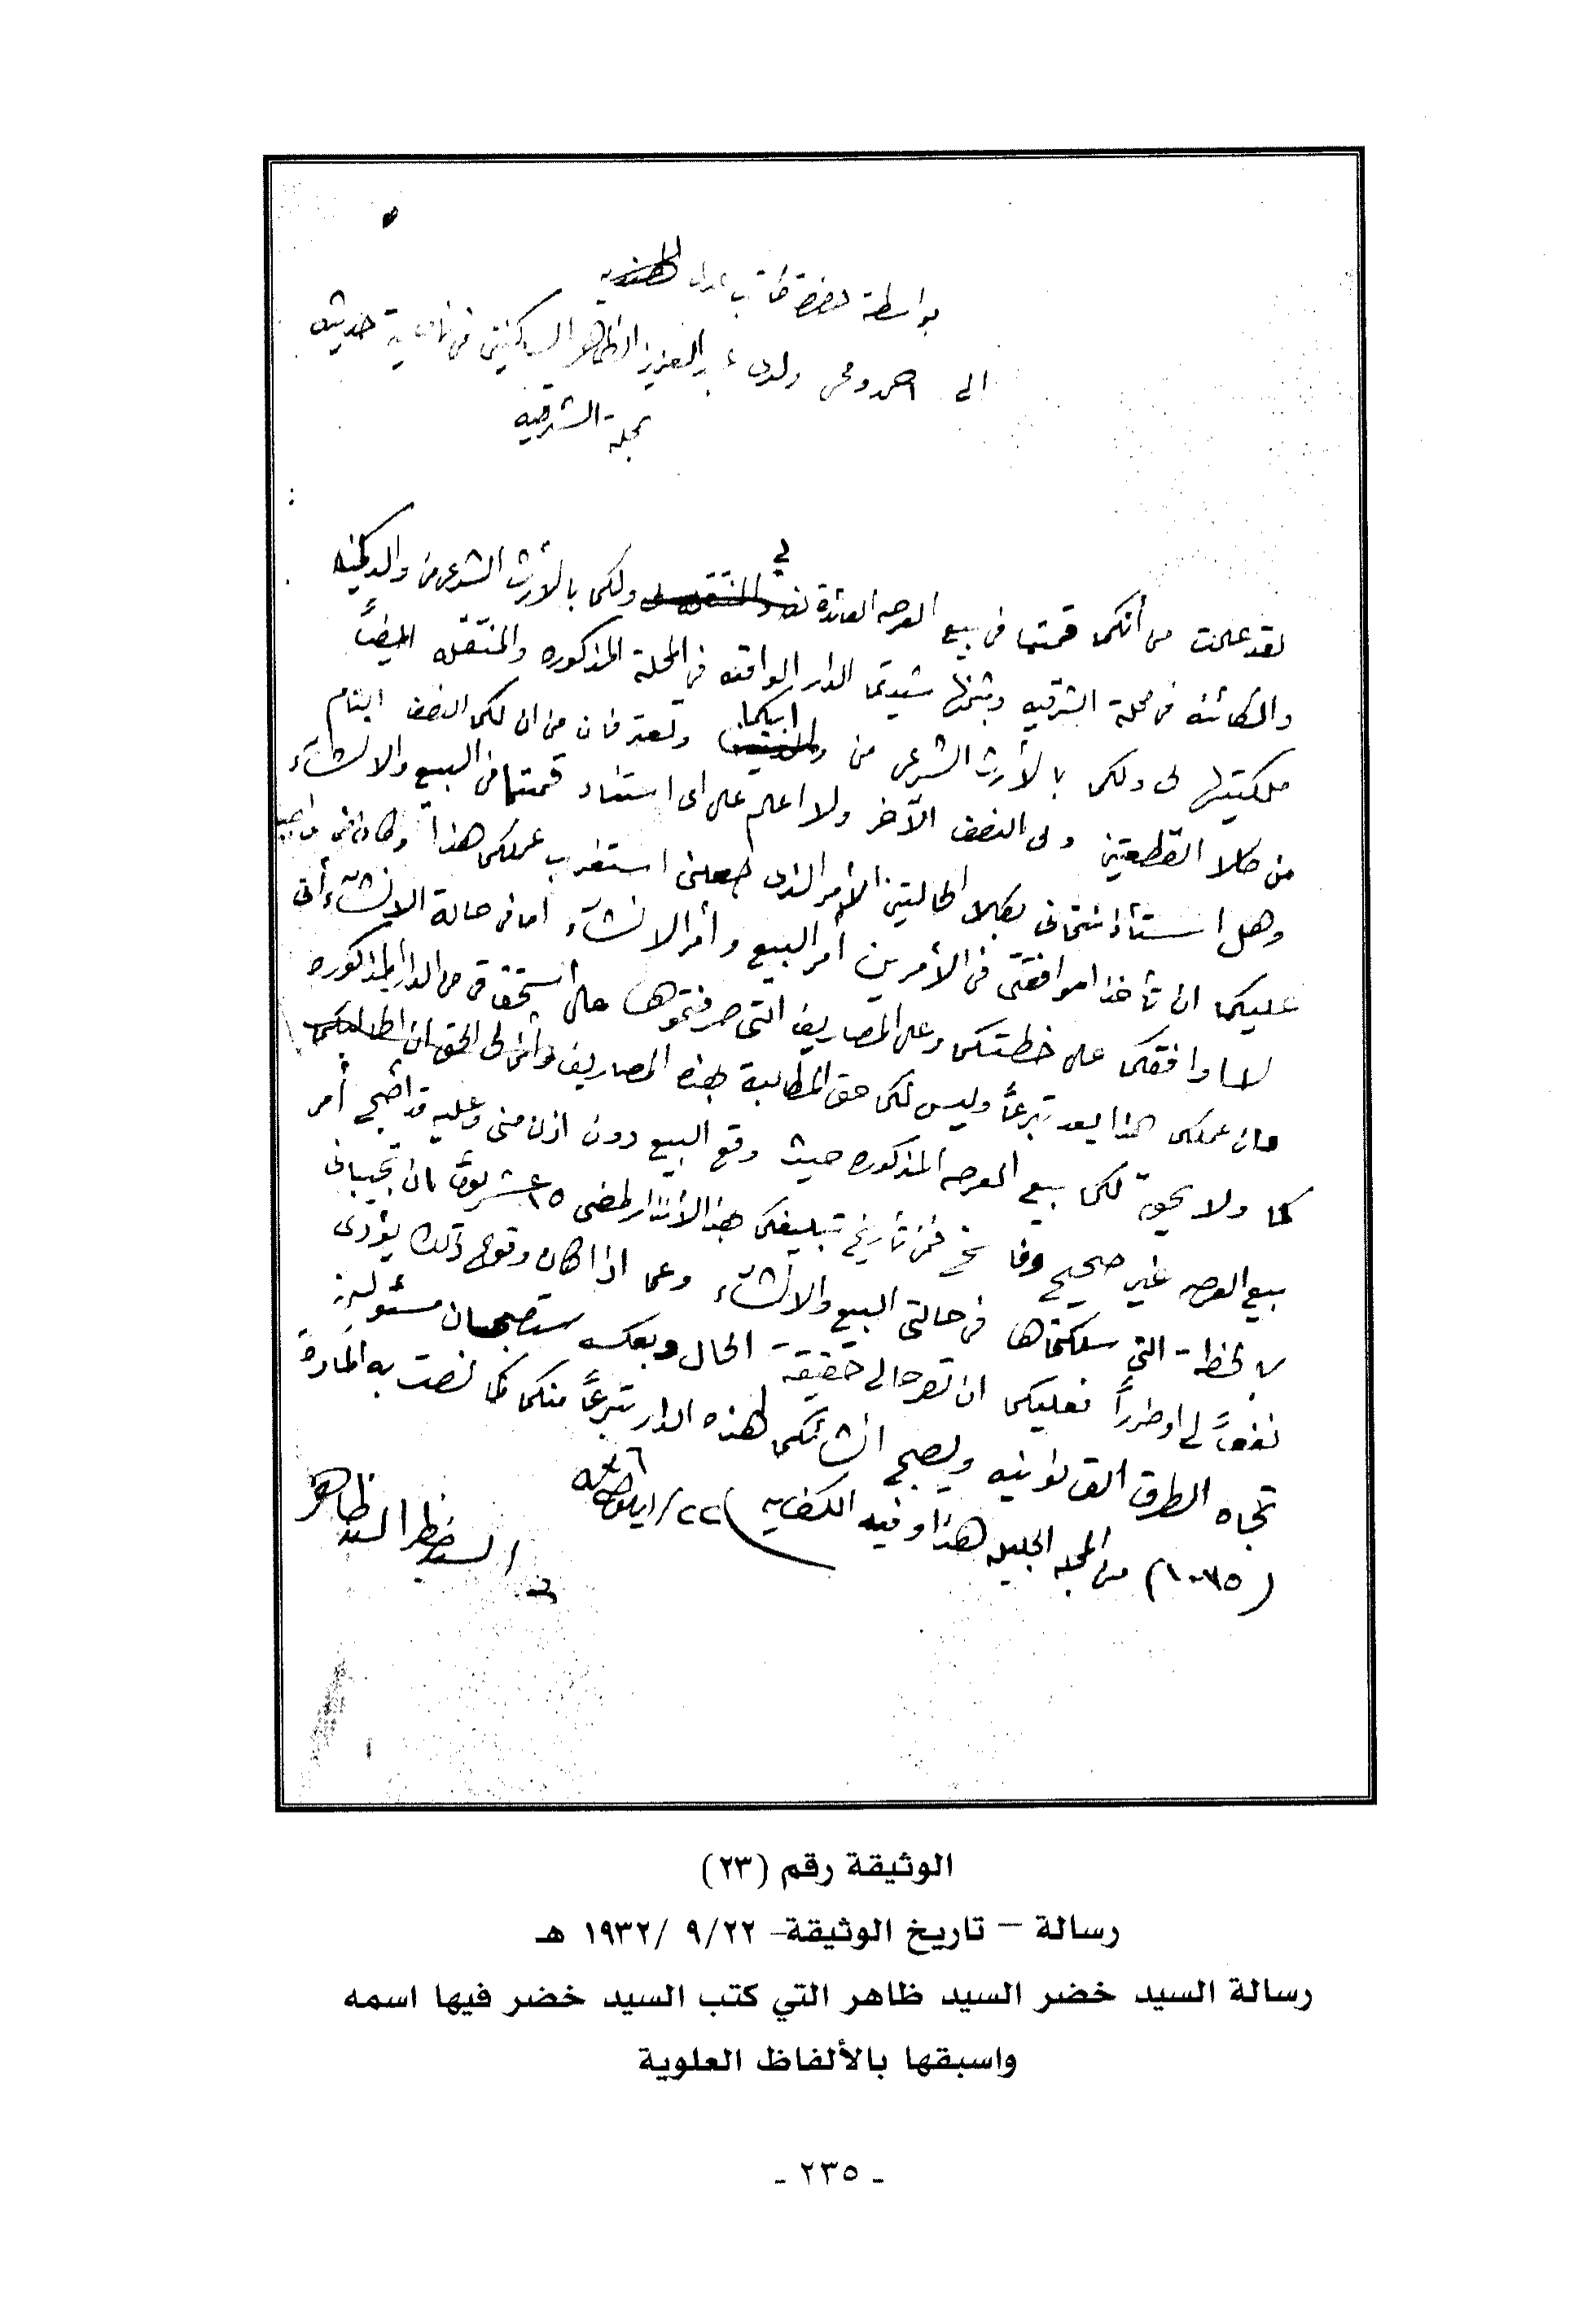 بواسطة حضرة كاتب عدل
الى احمد و ولدي عبد العزيز الظاهر الساكنين في ناحية حديثه
محلة الشرقيه
لقد علمت من أنكما قمتما في بيع العرصه العائدة لي ولكما بالأرث الشرعي من
والكائنه في محلة الشرقيه وبثمنها شيدتما الدار الواقعه في المحلة المذكوره والمنتقله ايضاً
ملكيتها لي ولكما بالأرث الشرعي من ابيكما وتعترفان من ان لكما النصف التام
من كلا القطعتين ولي النصف الآخر ولا اعلم على اي استناد قمتما في البيع والانشاء
وهل استأذنتماني بكلا الحالتين الأمر الذي جعلني استغرب عملكما هذا وكان من واجب
عليكما ان تأخذا موافقتي في الأمرين أمر البيع وأمر الانشاء اما في حالة الانشاء أني
لا اوافقكما على خطتكما وعلى المصاريف التي صرفتموها على استحقاقي من الدار المذكوره
فان عملكما هذا يعد تبرعاً وليس لكما حق المطالبة بهذه المصاريف وأن لي الحق ان اطالبكما
كما ولا يحق لكما بيع العرصه المذكوره حيث وقع البيع دون اذن مني وعليه قد أضحى أمر
بيع العرصه غير صحيح فمن تأريخ تبليغكما هذا الأنذار لمضي ١٥ يوماً بان تجيباني
التي سلكتماها في حالتي البيع والانشاء وعما اذا كان وقوع ذلك يؤدي
نفعاً لي او ضرراً فعليكما ان توضحا لي حقيقة الحال وبعكسه ستصبحان مسئولين
تجاه الطرق القانونيه ويصبح انشائكما لهذه الدار تبرعاً منكما كما نصت به المادة
(١٠٧٥) من المجله الجليله هذا وفيه الكفايه ٢٢/ايلول
السيد خضر السيد ظاهر
الوثيقة رقم (٢٣)
رسالة – تاريخ الوثيقة- ٢٢/ ٩/ ١٩٣٢ هـ
رسالة السيد خضر السيد ظاهر التي كتب السيد خضر فيها اسمه
واسبقها بالألفاظ العلوية
- ٢٣٥ -